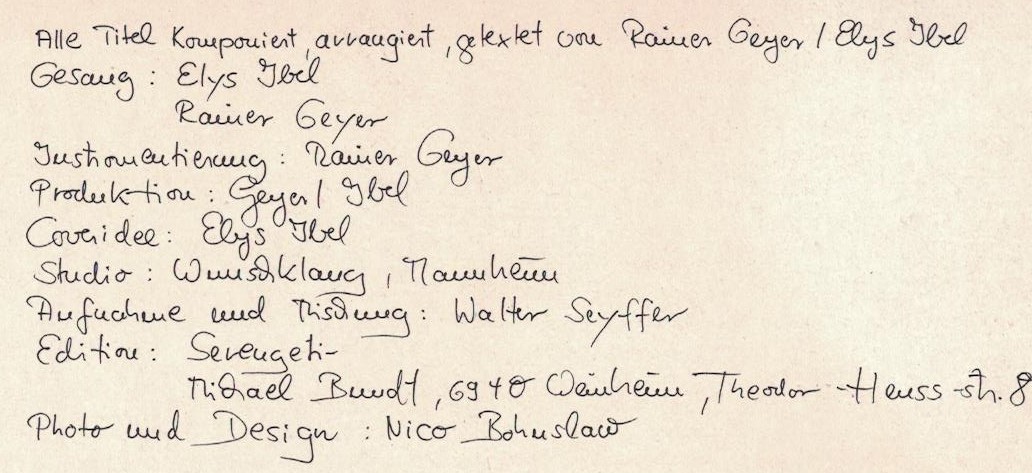 Alle Titel komponiert, arrangiert, getextet von Rainer Geyer / Elys Ibel
Gesang: Elys Ibel
Rainer Geyer
Instrumentierung: Rainer Geyer
Produktion: Geyer / Ibel
Coveridee: Elys Ibel
Studio: Wunschklang, Mannheim
Aufnahme und Mischung: Walter Seyffer
Edition: Serengeti-
Michael Bundt, 6940 Weinheim, Theodor-Heuss-str. 8
Photo und Design: Nico Bohnslaw